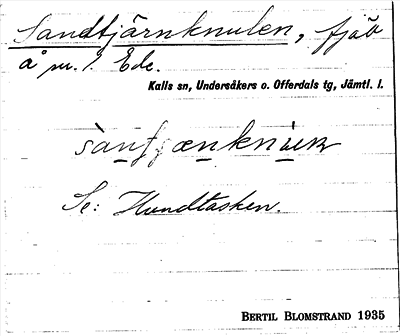 Sandtjärnknulen, fjäll
å nr. 1 Ede.
Kalls sn, Undersåkers o. Offerdals tg, Jämtl. l.
Se: Hundtasken.
BERTIL BLOMSTRAND 1935